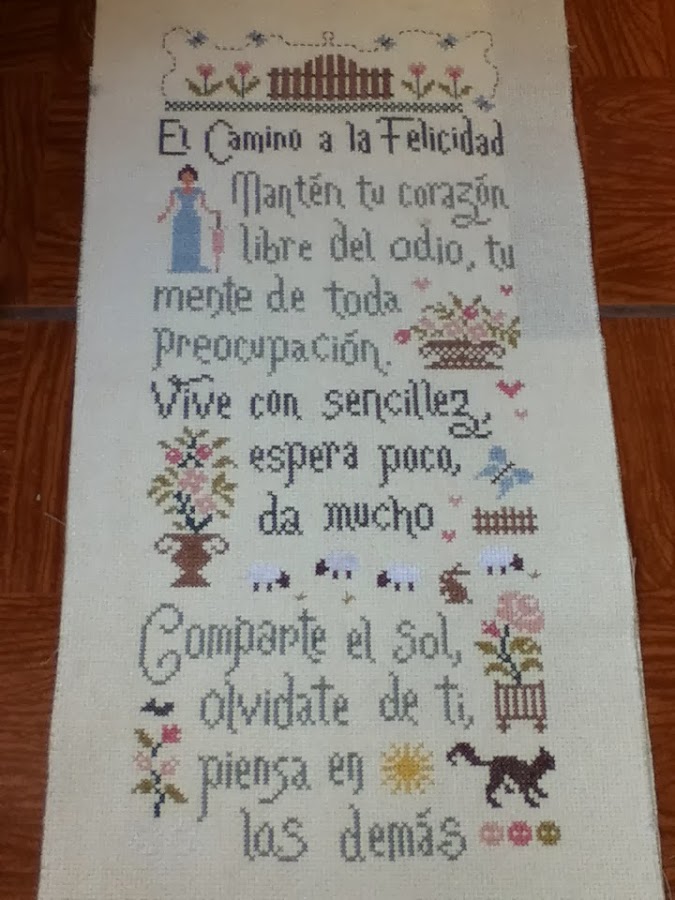 El Camino a la Felicidad
Mantén tu corazón
libre del odio, tu
mente de toda
preocupación.
Vive con sencillez,
espera poco,
da mucho
Comparte el sol,
olvidate de ti,
piensa en
los demás